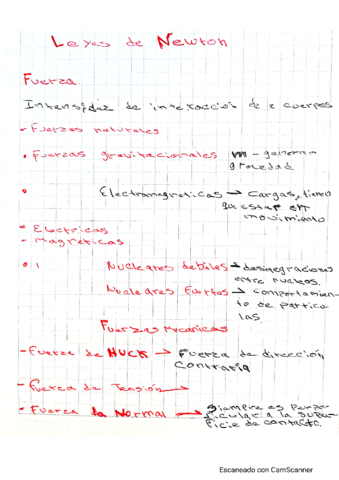 Leyes de Newton
Fuerza
Intensidad de interacción de 2 cuerpos
- Fuerzas naturales
• Fuerzas gravitacionales m - generan
gravedad
Electromagneticas → Cargas, tiene
que estar en
movimiento
- Electricas
- Magneticas
Nucleares debiles → desintegraciones
entre nucleos.
Nucleares Fuertes → comportamien-
to de particu
las.
Fuerzas Mecanicas
- Fuerza de HUCK → Fuerza de dirección
contraria
- Fuerza de Tensión →
- Fuerza la Normal → Siempre es perpe
diculara la super
ficie de contacto.
Escaneado con CamScanner